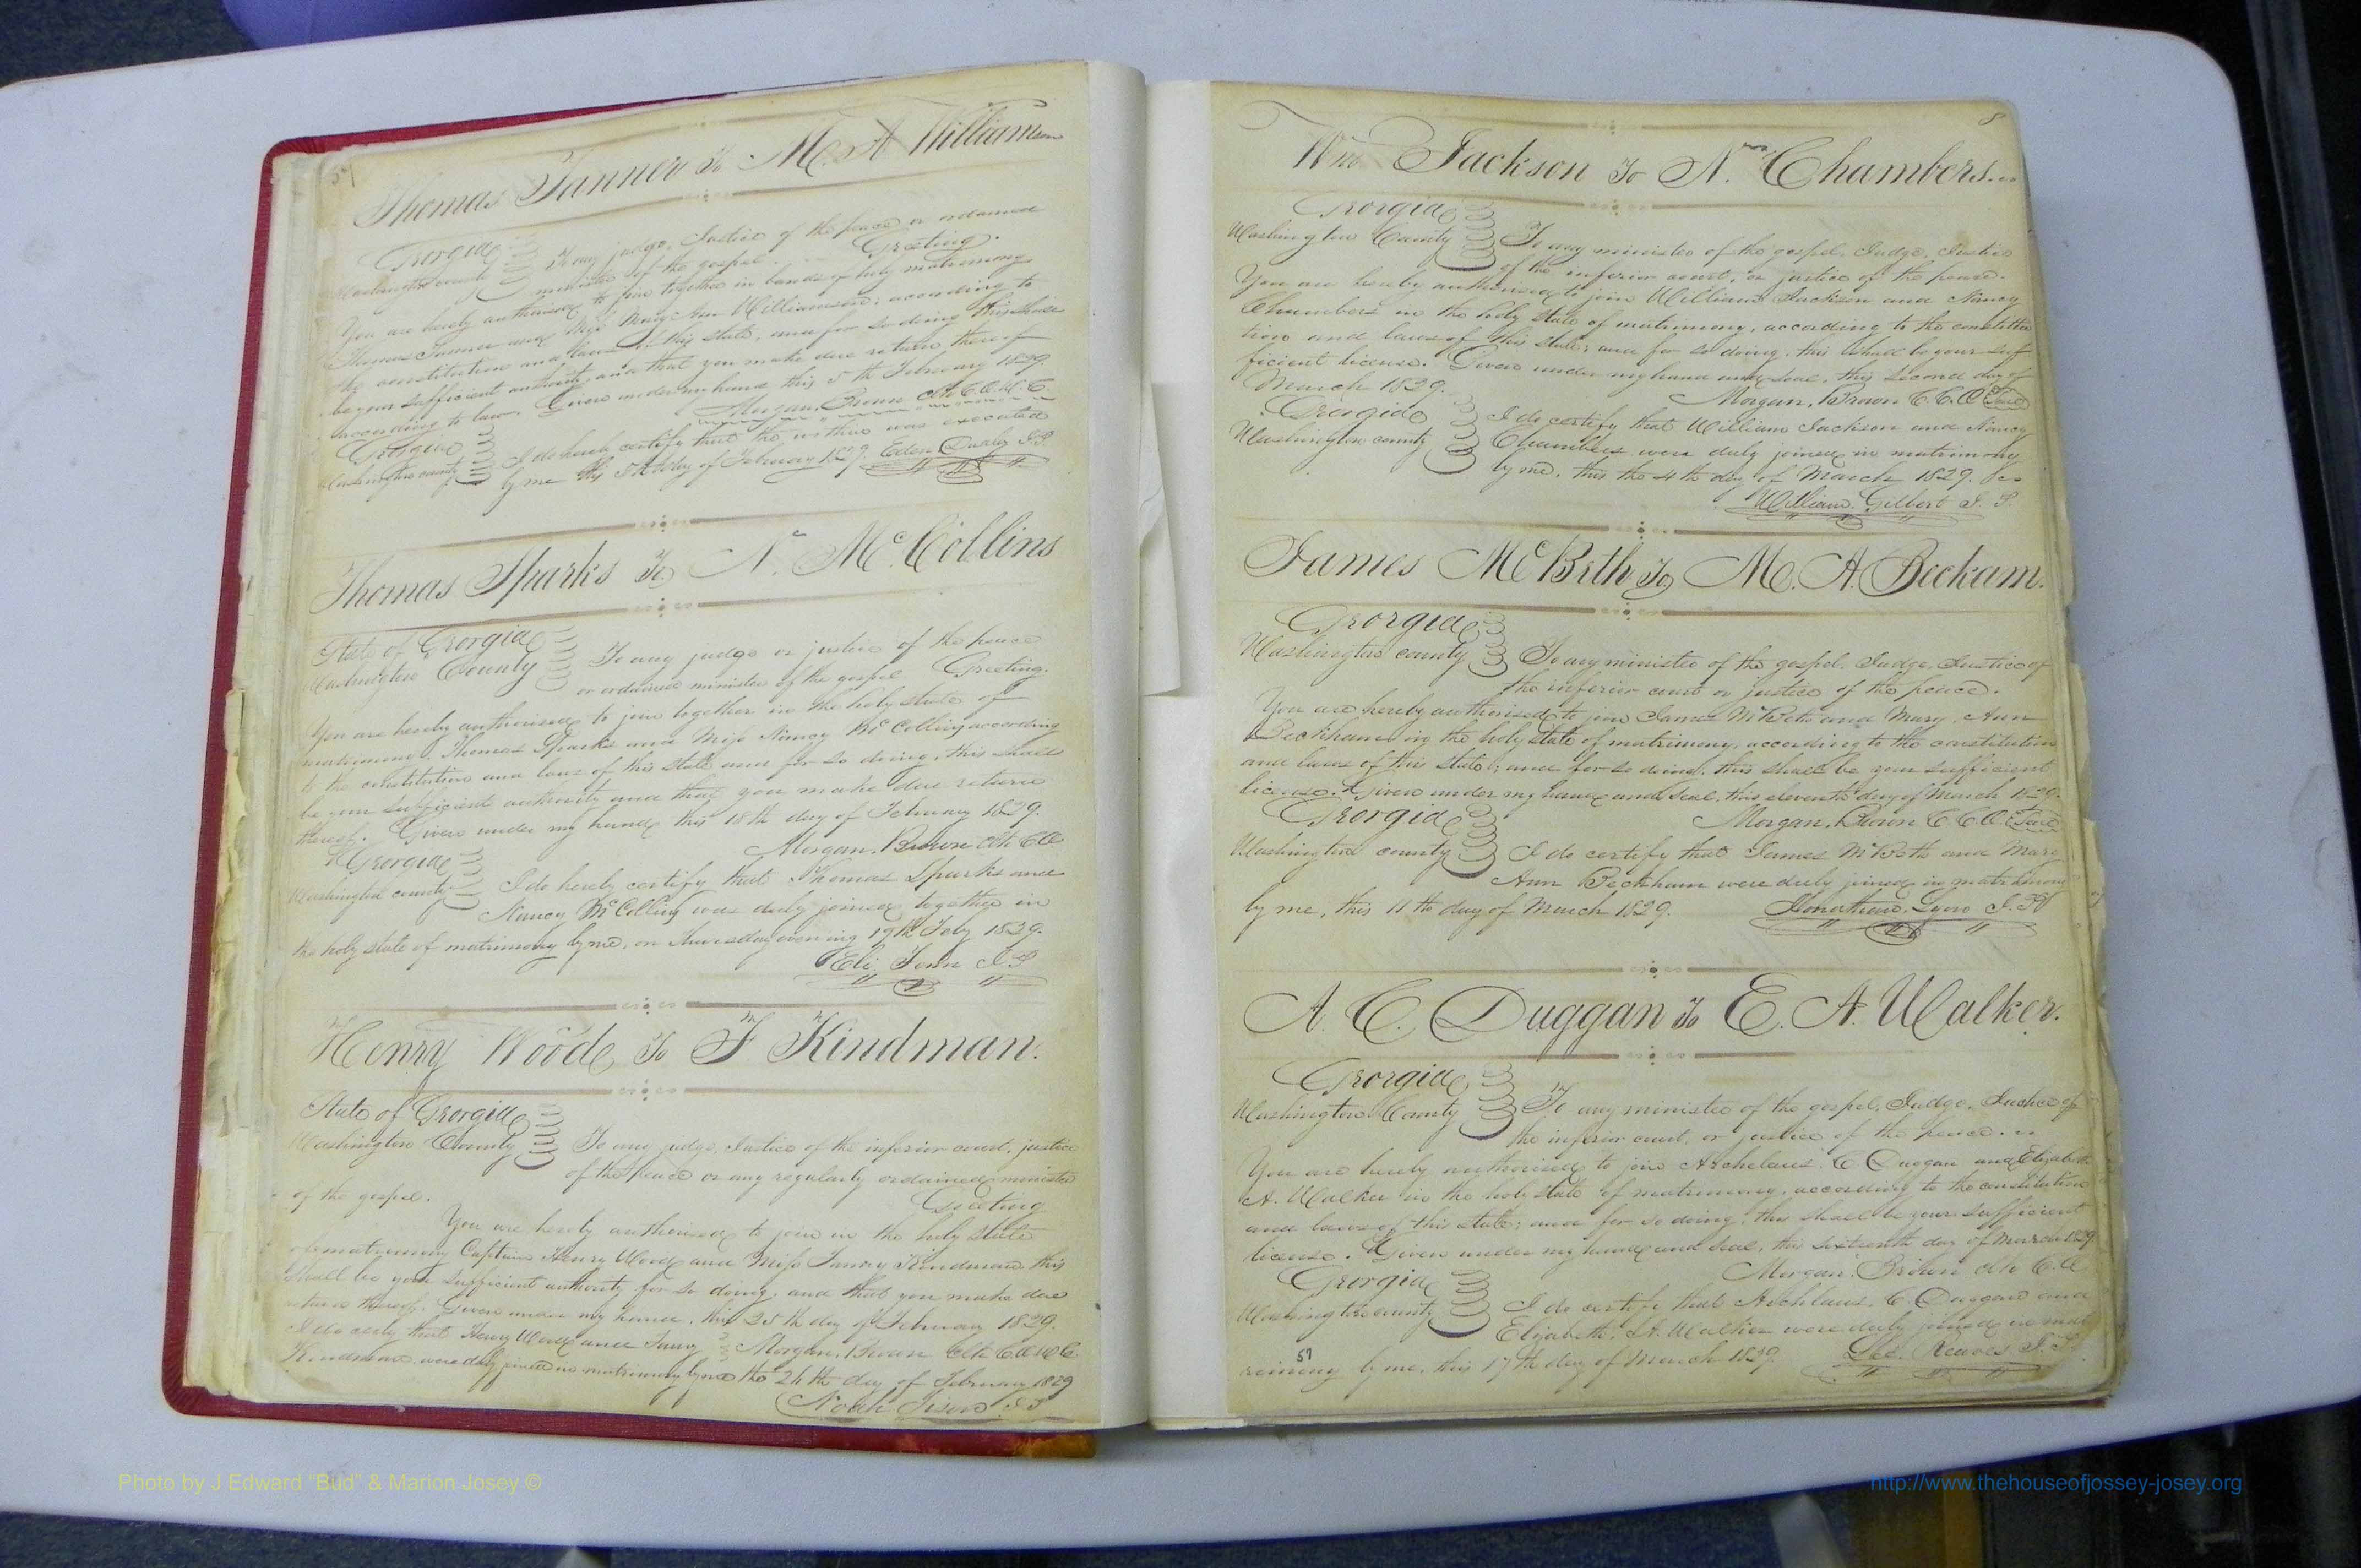 57
Thomas Tanner To M. A Williamson
Georgia
Washington county To any judge, Justice of the peace or ordained
minister of the gospel. Greeting.
You are hereby authorised to join together in bands of holy matrimony
Thomas Tanner and Miss Mary Ann Williamson; according to
the constitution and laws of this state, and for so doing this shall
be your sufficient authority, and that you make due return thereof
according to law. Given under my hand this 5th February 1829.
Morgan, Brown Clk C.O.W.C.
Georgia
Washington county I do hereby certify that the within was executed
by me this 5th day of February 1829.
Thomas Sparks To N. McCollins
State of Georgia
Washington County To any judge or justice of the peace
or ordained minister of the gospel Greeting.
You are hereby authorised to join together in the holy state of
matrimony, Thomas Sparks and Miss Nancy McCollins according
to the constitution and laws of this state and for so doing, this shall
be your sufficient authority and that you make due return
thereof. Given under my hand this 18th day of February 1829.
Morgan, Brown Clk CO
Georgia
Washington county I do hereby certify that Thomas Sparks and
Nancy McCollins was duly joined together in
the holy state of matrimony by me, on Thursday evening 19th Feby 1829.
Eli Fenn J.P
Henry Wood To F Kindman.
State of Georgia
Washington County To any judge, Justice of the inferior court, justice
of the peace or any regularly ordained minister
of the gospel. Greeting
You are hereby authorised to join in the holy state
of matrimony Captain Henry Wood and Miss Fanny Kindman this
shall be your sufficient authority for so doing, and that you make due
return thereof. Given under my hand, this 25th day of February 1829.
I do certy that Henry Wood and Fanny Morgan, Brown Clk C.O.W.C
Kindman were duly joined in matrimony by me the 26th day of February 1829
Noah J.P
8
Wm Jackson To N. Chambers.
Georgia
Washington County To any minister of the gospel, Judge, Justice
of the inferior court, or justice of the peace.
You are hereby authorised to join William Jackson and Nancy
Chambers in the holy state of matrimony, according to the constitu
tion and laws of this state; and for so doing, this shall be your suf
ficient license. Given under my hand and seal, this second day of
March 1829. Morgan, Brown C.C.O Seal
Georgia
Washington county I do certify, that William Jackson and Nancy
Chambers were duly joined in matrimony
by me, this the 4th day of March 1829.
William Gilbert J. P.
James McBeth To M. A. Beckam.
Georgia
Washington county To any minister of the gospel, Judge, Justice of
the inferior court or justice of the peace.
You are hereby authorised to join James McBeth and Mary Ann
Beckham in the holy state of matrimony, according to the constitution
and laws of this state; and for so doing, this shall be your sufficient
license. Given under my hand and seal, this eleventh day of March 1829.
Georgia Morgan, Brown C.C.O. Seal
Washington county I do certify that James McBeth and Mary
Ann Beckham were duly joined in matrimony
by me, this 11th day of March 1829. Jonathan Lyon J.P
A. C. Duggan To E. A. Walker.
Georgia
Washington County To any minister of the gospel, Judge, Justice of
the inferior court, or justice of the peace.
You are hereby authorised to join Archelaus C Duggan and Elizabeth
A. Walker in the holy state of matrimony, according to the constitution
and laws of this state; and for so doing, this shall be your sufficient
license. Given under my hand and seal, this sixteenth day of March 1829
Morgan, Brown Clk C.O
Georgia
Washington county I do certify that Archlaus, C. Duggan and
Elizabeth, A. Walker were duly joined in mat
rimony by me, this 17th day of March 1829. Reaves J.P.
59
Photo by J Edward "Bud" & Marion Josey ©
http://www.thehouseofjossey-josey.org